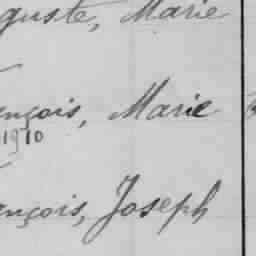 guste, Marie
ançois, Marie
1910
ançois, Joseph